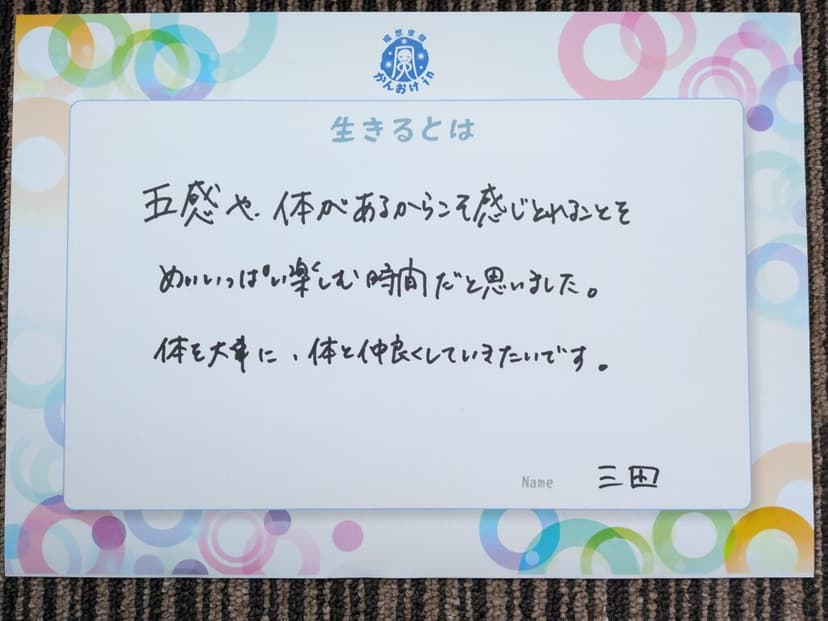 瞑想空間
かんおけin
生きるとは
五感や、体があるからこそ感じとれることを
めいいっぱい楽しむ時間だと思いました。
体を大事に、体と仲良くしていきたいです。
Name 三田